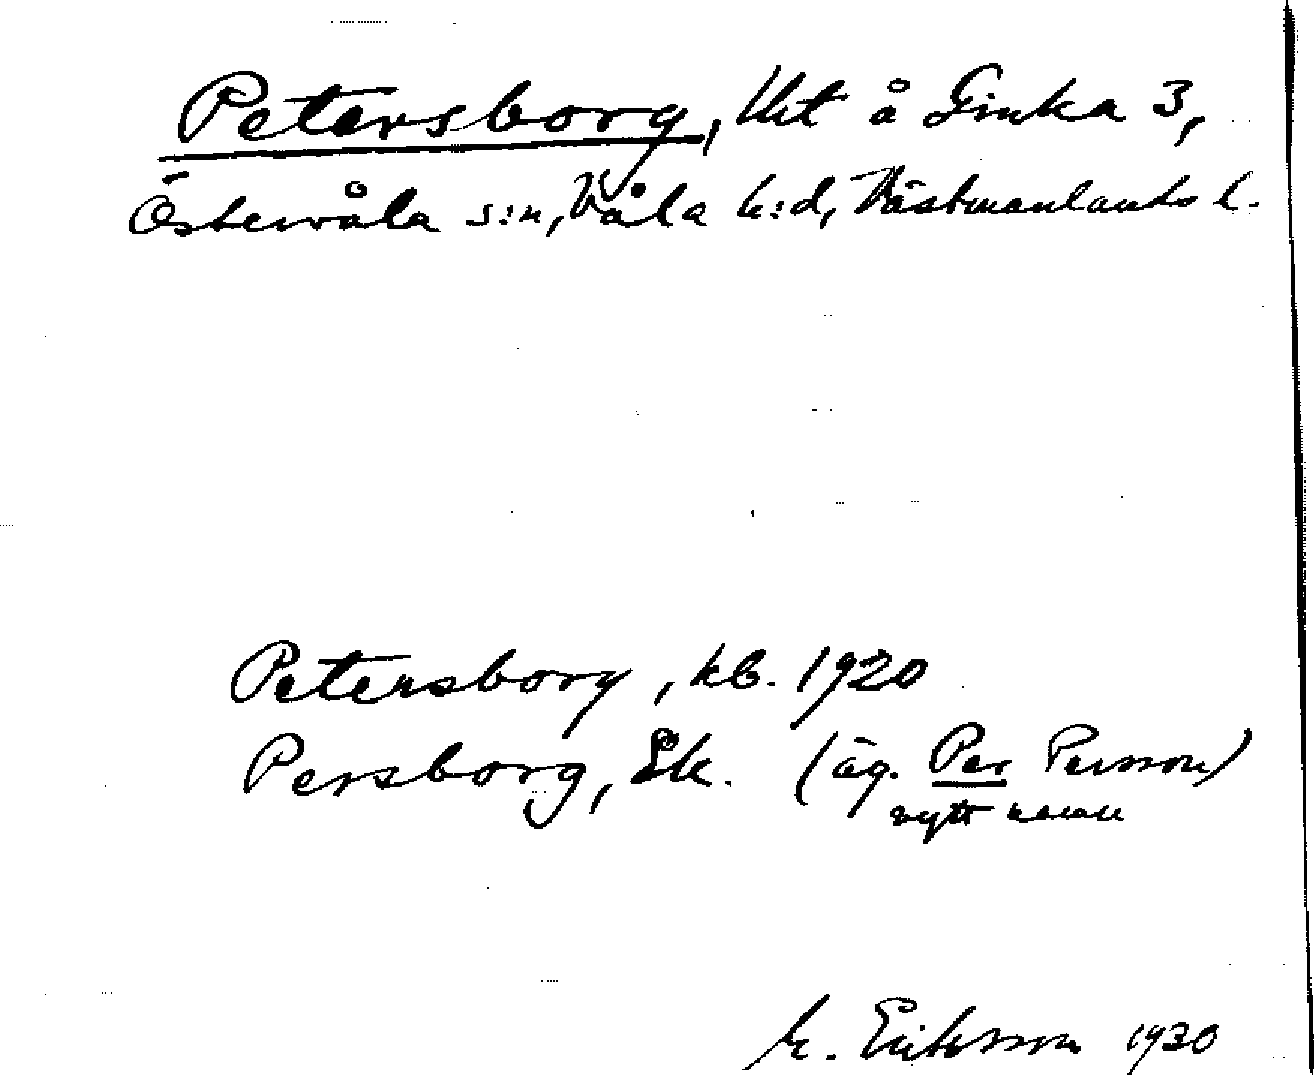 Petersborg, lht å Ginka 3,
Östervåla s:n, Våla h:d, Västmanlands l.
Petersborg, kb. 1920
Persborg, Ek. (äg. Per Persson)
nytt namn
M. Eriksson 1930